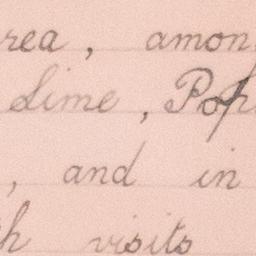 rea, amon
Lime, Pop
, and in
h visits